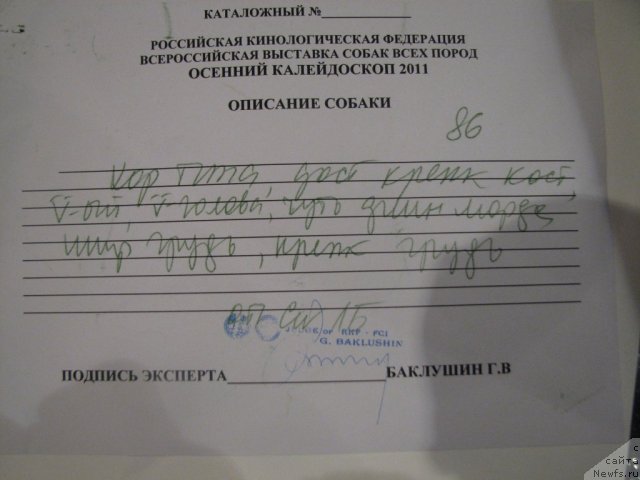 КАТАЛОЖНЫЙ №____________
РОССИЙСКАЯ КИНОЛОГИЧЕСКАЯ ФЕДЕРАЦИЯ
ВСЕРОССИЙСКАЯ ВЫСТАВКА СОБАК ВСЕХ ПОРОД
ОСЕННИЙ КАЛЕЙДОСКОП 2011
ОПИСАНИЕ СОБАКИ
86
хор типа дост крепк кост,
голова, чуть длин морда,
шир грудь, крепк грудь
JUDGE OF RKF - FCI
G. BAKLUSHIN
ПОДПИСЬ ЭКСПЕРТА____________________БАКЛУШИН Г.В
с
сайта
Newfs.ru